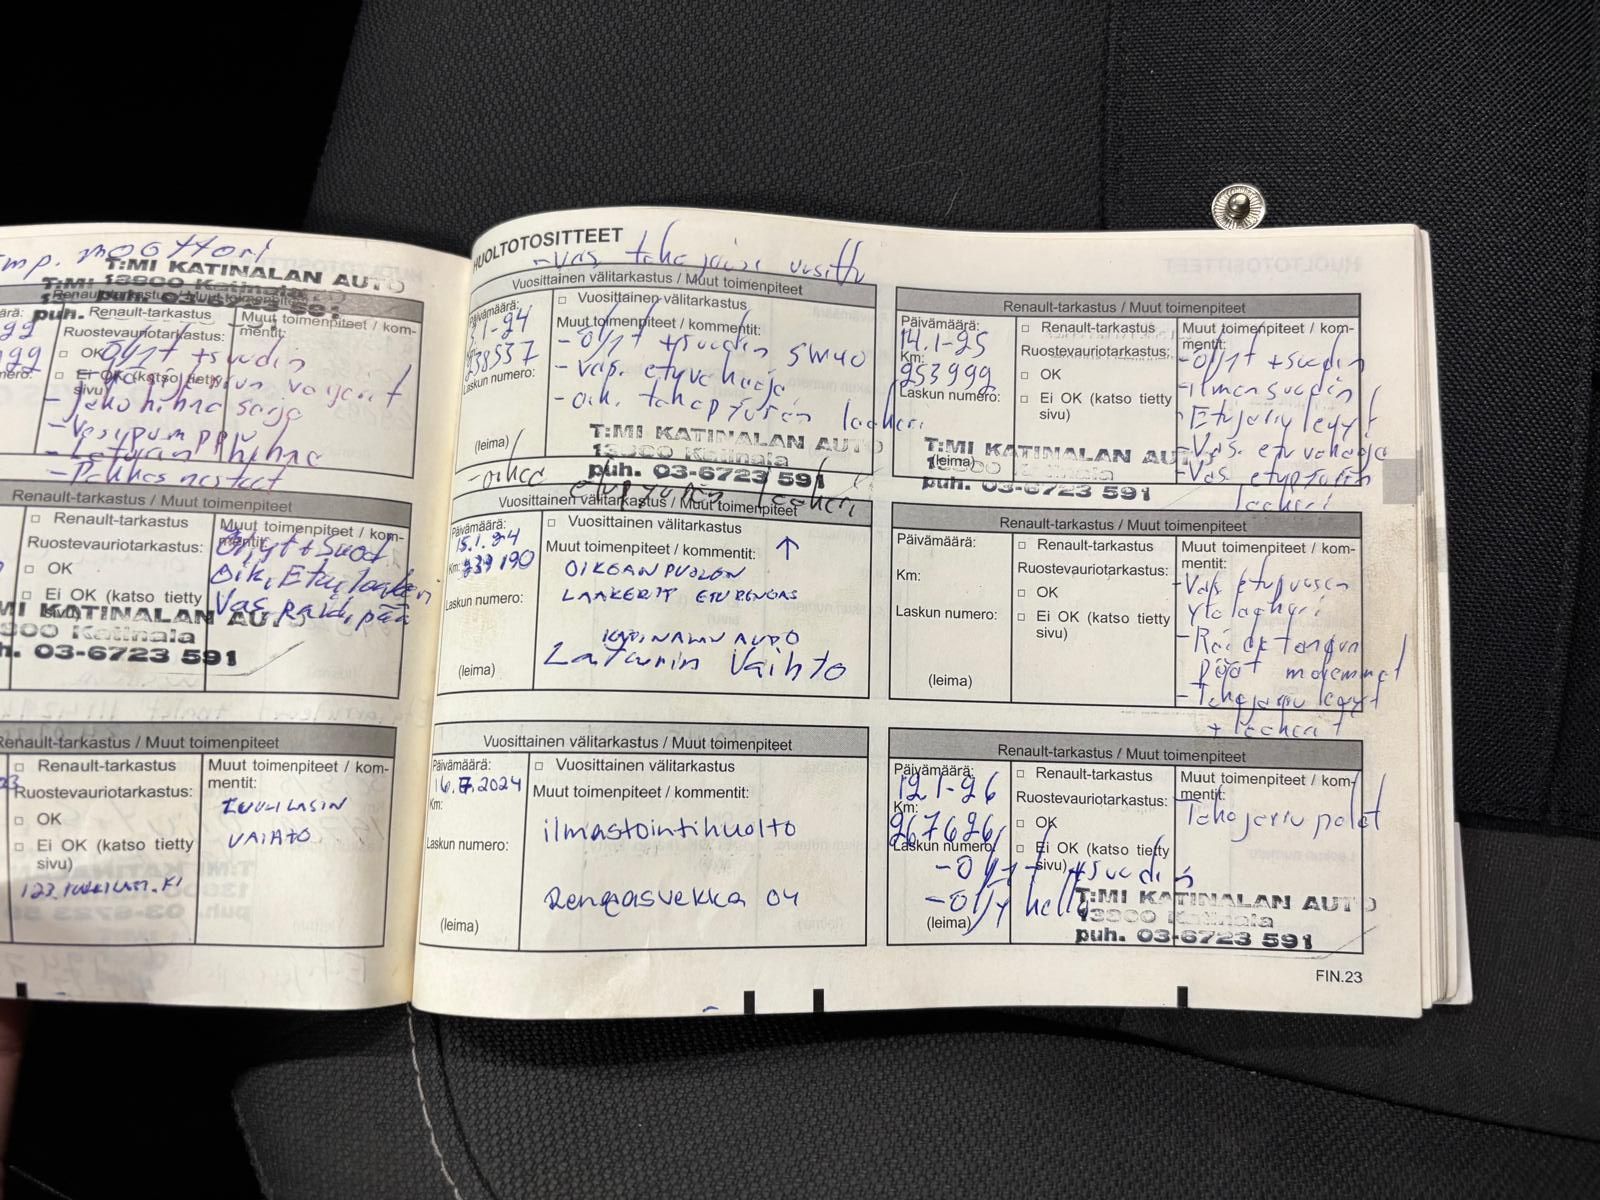 mp. moottori
T:MI KATINALAN AUTO
13900 Katinala
puh.
Renault-tarkastus / Muut toimenpiteet
Renault-tarkastus
Ruostevauriotarkastus:
OK
Ei OK (katso tietty sivu)
Muut toimenpiteet / kommentit:
Öljyt + suodin
- Jakohihna sarja
- Vesipumppu
- Laturin hihna
- Pakkasnesteet
Renault-tarkastus / Muut toimenpiteet
Renault-tarkastus
Ruostevauriotarkastus:
OK
Ei OK (katso tietty
Muut toimenpiteet / kommentit:
Öljyt + Suod.
Oik. Etu laakeri
Vas. raid. pää
MI KATINALAN AUTO
900 Katinala
h. 03-6723 591
Renault-tarkastus / Muut toimenpiteet
Renault-tarkastus
Ruostevauriotarkastus:
OK
Ei OK (katso tietty sivu)
Muut toimenpiteet / kommentit:
TUULILASIN
VAIHTO
HUOLTOTOSITTEET
- Vas takajousi uusittu
Vuosittainen välitarkastus / Muut toimenpiteet
Päivämäärä:
1-24
Km:
238537
Laskun numero:
(leima)
Vuosittainen välitarkastus
Muut toimenpiteet / kommentit:
- Öljyt + suodin 5W40
- Vas. etuvakaaja
- oik. takapyörän laakeri
T:MI KATINALAN AUTO
13900 Katinala
puh. 03-6723 591
- oikea etupyörän laakeri
Vuosittainen välitarkastus / Muut toimenpiteet
Päivämäärä:
15.1.24
Km: 239190
Laskun numero:
(leima)
Vuosittainen välitarkastus
Muut toimenpiteet / kommentit:
↑
OIKEAN PUOLEN
LAAKERIT ETURENGAS
KATINALAN AUTO
Laturin Vaihto
Vuosittainen välitarkastus / Muut toimenpiteet
Päivämäärä:
16.7.2024
Km:
Laskun numero:
(leima)
Vuosittainen välitarkastus
Muut toimenpiteet / kommentit:
ilmastointihuolto
Rengasvekka oy
Renault-tarkastus / Muut toimenpiteet
Päivämäärä:
14.1-25
Km:
253999
Laskun numero:
(leima)
Renault-tarkastus
Ruostevauriotarkastus:
OK
Ei OK (katso tietty sivu)
Muut toimenpiteet / kommentit:
- Öljyt + suodin
- ilman suodin
- Etujarru levyt
- Vas. etu vakaaja
- Vas etupyörän laakeri
T:MI KATINALAN AUTO
13900 Katinala
puh. 03-6723 591
Renault-tarkastus / Muut toimenpiteet
Päivämäärä:
Km:
Laskun numero:
(leima)
Renault-tarkastus
Ruostevauriotarkastus:
OK
Ei OK (katso tietty sivu)
Muut toimenpiteet / kommentit:
- Vas etupuosen
ylä laakeri
- Raidetangon
päät molemmat
- Takajarru levyt
+ laakerit
Renault-tarkastus / Muut toimenpiteet
Päivämäärä:
12.1-26
Km:
267626
Laskun numero:
(leima)
Renault-tarkastus
Ruostevauriotarkastus:
OK
Ei OK (katso tietty sivu)
Muut toimenpiteet / kommentit:
- Takajarru palat
- Öljyt + suodin
- Öljy
T:MI KATINALAN AUTO
13900 Katinala
puh. 03-6723 591
FIN.23